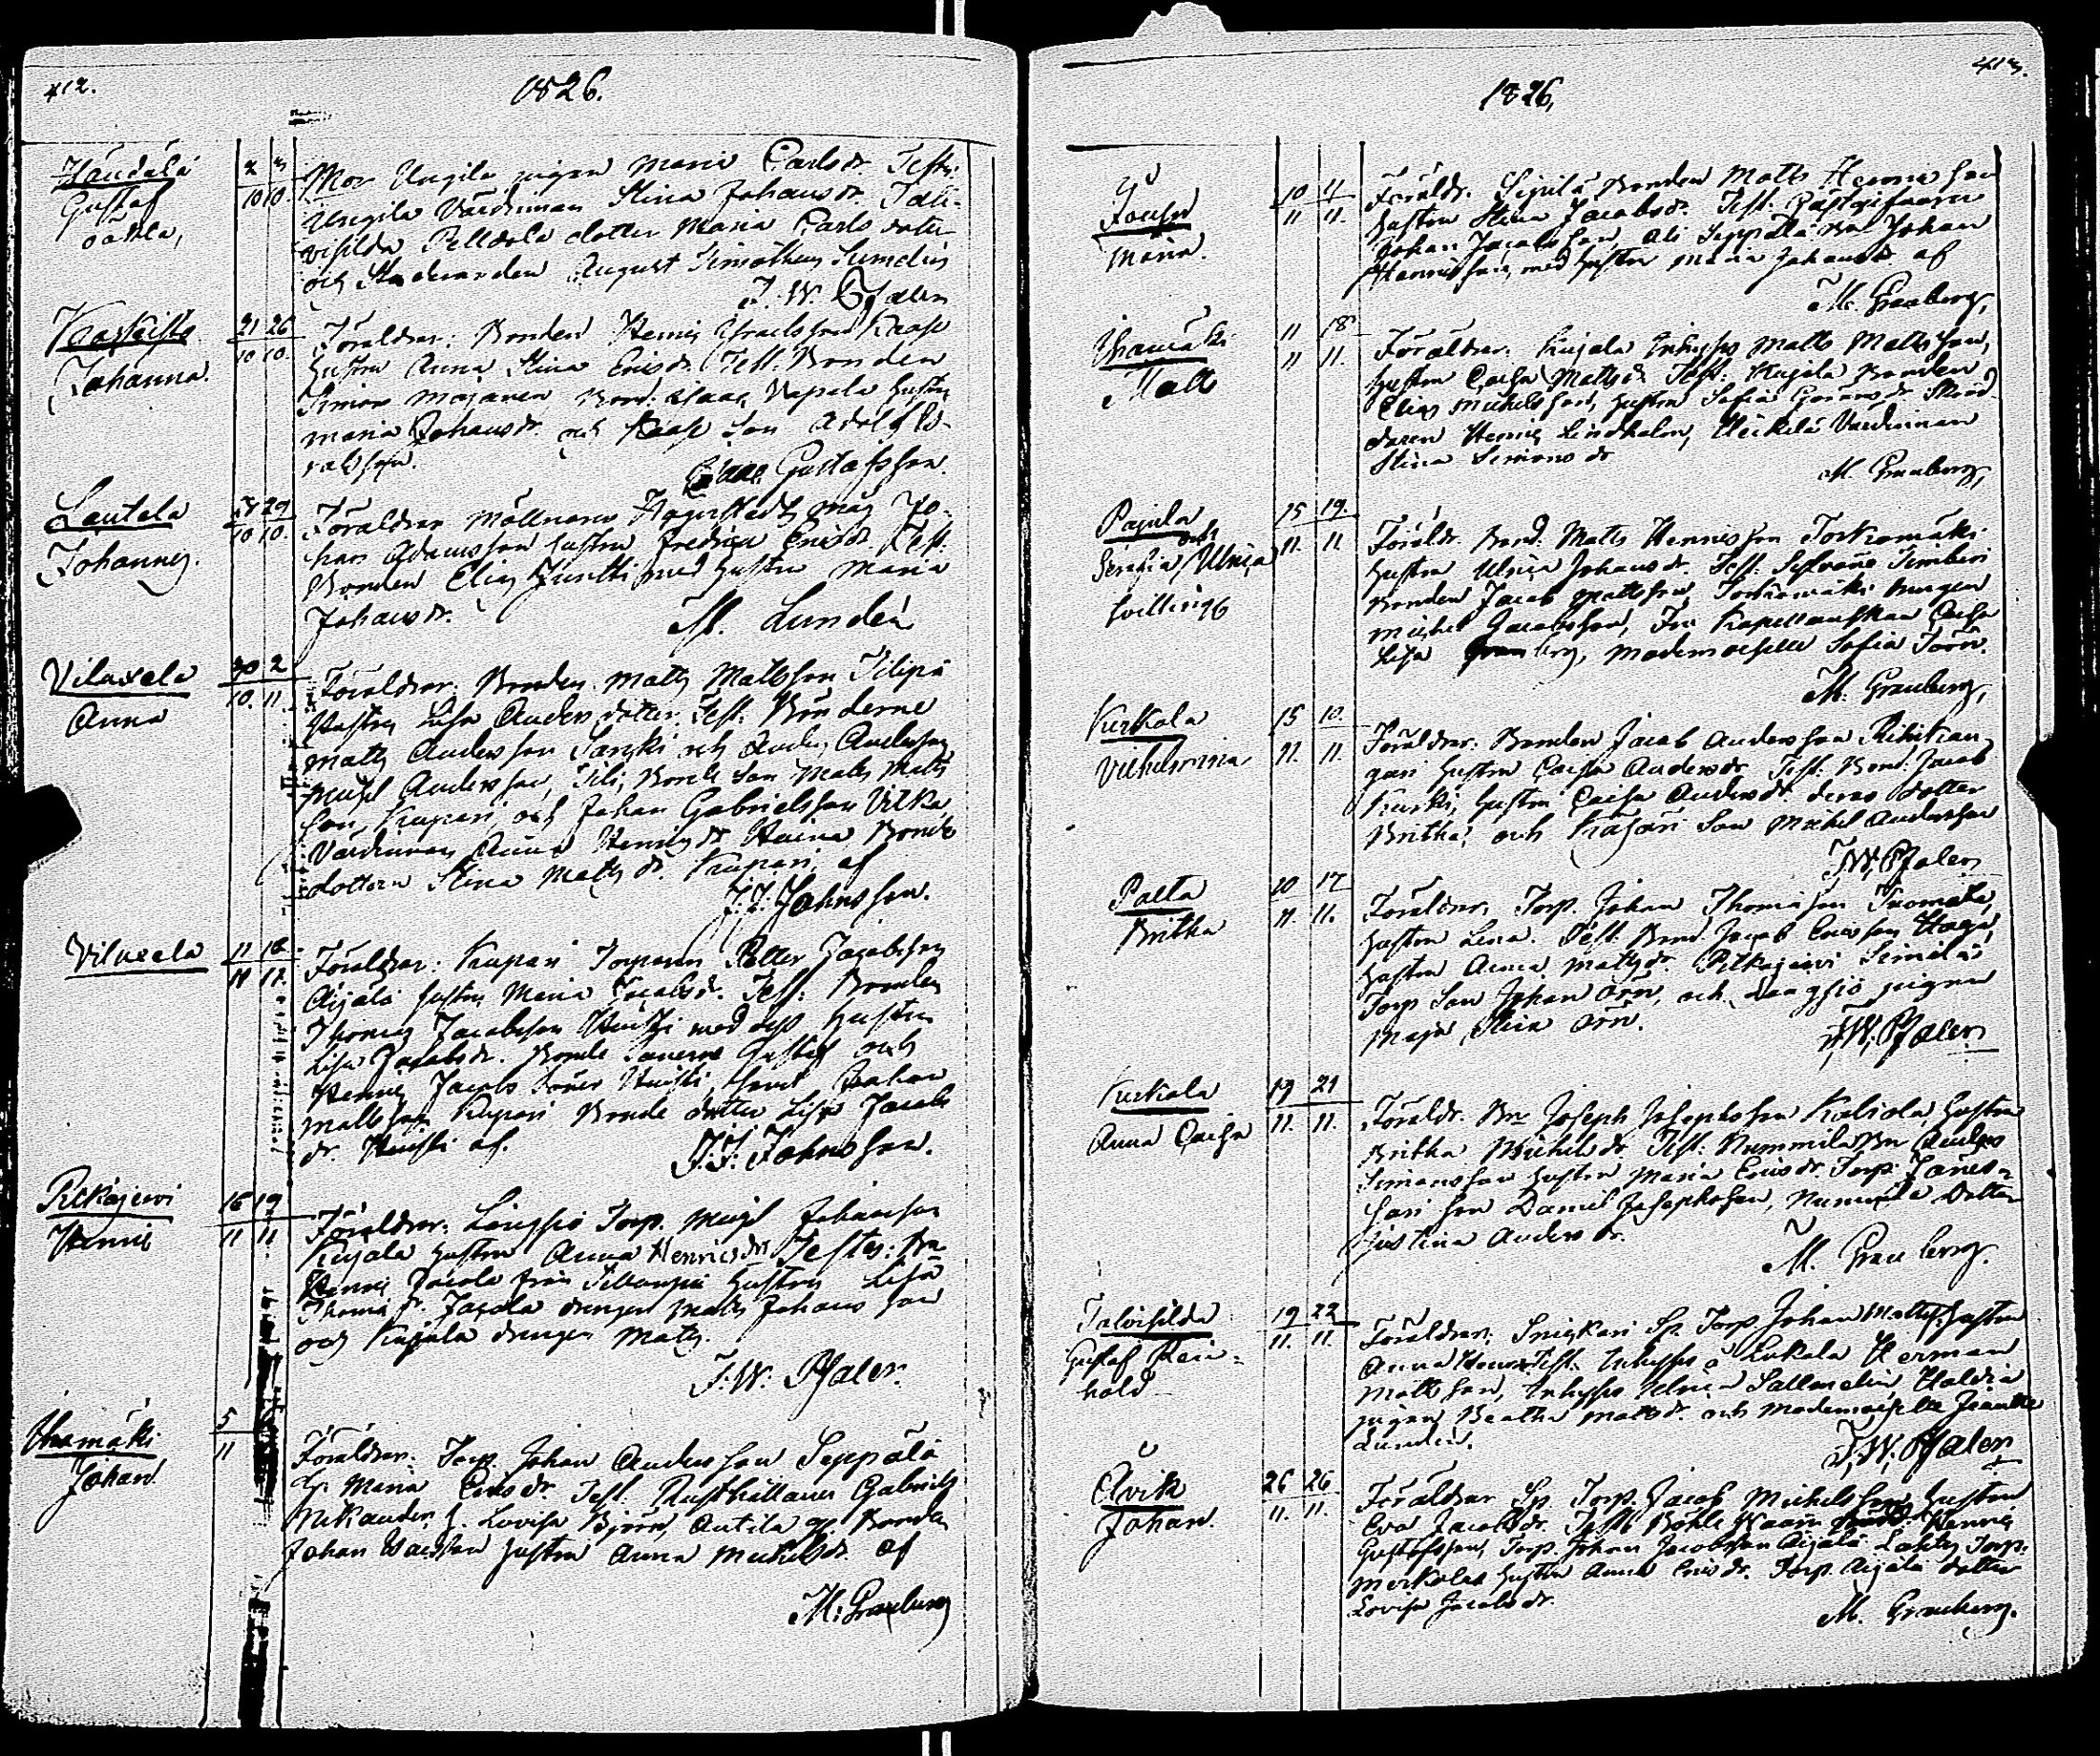 412.
1826.
Gustaf
2 3
10 10.
Mor Ungila pigan Maria Carlsdr. Test:
Ungila Värdinnan Stina Johansdr. Tal-
visilda Pelldola dotter Maria Carls dotter
och Studeranden August Timotheus Sumelius
J. W. Pfaler
Johanna.
21 26
10 10.
Föräldrar: Bonden Henric Israelsson Kaase
hustru Anna Stina Ericsdr. Test. Bonden
Simon Mojanen, Bond. Vapala hustru
Maria Johansdr. och Kaase Son Adolf Is-
raelsson.
Isaac Gustafsson.
Lautela
Johannes.
28 29
10 10.
Föräldrar Möllnaren måg Jo-
han Adamsson hustru Fredrica Ericsdr. Test.
Bonden Elias Juntti med hustru Maria
Johansdr.
M. Lundén
Viluxela
Anna
30 2
10. 11.
Föräldrar: Bonden Matts Mattsson Filipä
Hustru Lisa Anders dotter. Test. Bönderne
Matts Andersson och Anders Andersson
Michel Andersson, Bonde Son Matts Matts
son, Kupari, och Johan Gabrielsson Uitka
Värdinnan Anna Henricsdr. Bonde
dottern Stina Mattsdr. Kupari, af
J. J. Johnsson.
Viluxela
11 12
11 11.
Föräldrar: Kupari Torparen Petter Jacobsson
Äijälä hustru Maria Jacobsdr. Test: Bonden
Thomas Jacobsson Huiski med dess hustru
Lisa Jacobsdr. Bonde Sönerne Gustaf och
Henric Jacobs Söner Huiski, samt Johan
Mattsson Kupari Bonde dotter Lisa Jacobs
dr. Huiski af.
J. J. Johnsson.
Pitkäjervi
Henric
16 19
11 11
Föräldrar: Långsjö Torp. Michel Johansson
Kujala hustru Anna Henricsdr. Testes: Bn
Henric Jacola från hustru Lisa
Thomædr. Jacola drengen Matts Johansson
och Kujala drengen Matts.
J. W. Pfaler.
Uhamäki
Johan
5
11
Föräldrar: Torp. Johan Andersson Seppälä
h. Maria Ericsdr. Test. Rusthållaren Gabriel
Nikander, h. Lovisa Björn, Antila Bonden
Johan Isacsson hustru Anna Michelsdr. af
M. Granberg
413.
1826.
Maria.
10 11
11 11.
Föräldr. Sipilä Bonden Matts Henricsson
hustru Stina Jacobsdr. Test. Gästgifvaren
Johan Jacobsson, Ali Seppälä Bn Johan
Henricsson, med hustru Maria Johansdr. af
M. Granberg.
Uhamäki
Matts
11 18
11 11.
Föräldrar: Kujala Inhyses Matts Mattsson,
hustru Caisa Mattsdr. Test. Kujala Bonden
Elias Michelsson, hustru Sofia Göransdr. Skräd-
daren Henric Lindholm, Heikilä Värdinnan
Stina Simonsdr
M. Granberg,
Pajula
Serafia och Ulrica
tvillingb
15 19.
11. 11
Föräldr. Bond. Matts Henricsson Torkamäki
hustru Ulrica Johansdr. Test.
Bonden Jacob Mattsson, Torkamäki drengen
Michel Jacobsson, Fru Kapellanskan Caisa
Lisa Granberg, Mademoiselle Sofia Törn.
M. Granberg,
Kurkala
Vilhelmina
15 10.
11. 11
Föräldrar: Bonden Jacob Andersson Rihikan-
gari hustru Caisa Andersdr. Test. Bond. Jacob
Kurki, hustru Caisa Andersdr. deras dotter
Britha, och Son Michel Andersson
J. W. Pfaler
Palta
Britha
10 17
11. 11.
Föräldrar: Torp. Johan Thomasson Tuomala,
hustru Lena. Test. Bond. Jacob Ericsson Haga,
hustru Anna Mattsdr. Pitkäjervi Simila
Torp Son Johan Örn, och Långsjö pigan
Maja Stina Örn.
J. W. Pfaler
Kurkala
Anna Caisa
19 21
11. 11.
Föräldr. Bn Joseph Josephsson Kaliola, hustru
Britha Michelsdr. Test. Nummila Bn Anders
Simonsson hustru Maria Ericsdr. Torp.
Son Daniel Josephsson, Nummila Dotter
Justina Andersdr.
M. Granberg.
Talvisilda
Gustaf Rein-
hold
19 22
11. 11.
Föräldrar: Snickari Sp. Torp Johan Mattss. hustru
Anna Test. Inhyses Lukala Herman
Mattsson, Inhyses Ulrica Haldia
pigan Beatha Mattsdr. och Mademoiselle Jeanette
Lunden.
J. W. Pfaler
Åvik
Johan.
26 26
11. 11.
Föräldrar Sp. Torp. Jacob Michelsson hustru
Eva Jacobsdr. Test. Böhle Henric
Gustafsson, Torp. Johan Jacobsson Äijälä Torp.
hustru Anna Ericsdr. Torp. Äijälä dotter
Lovisa Jacobsdr.
M. Granberg.